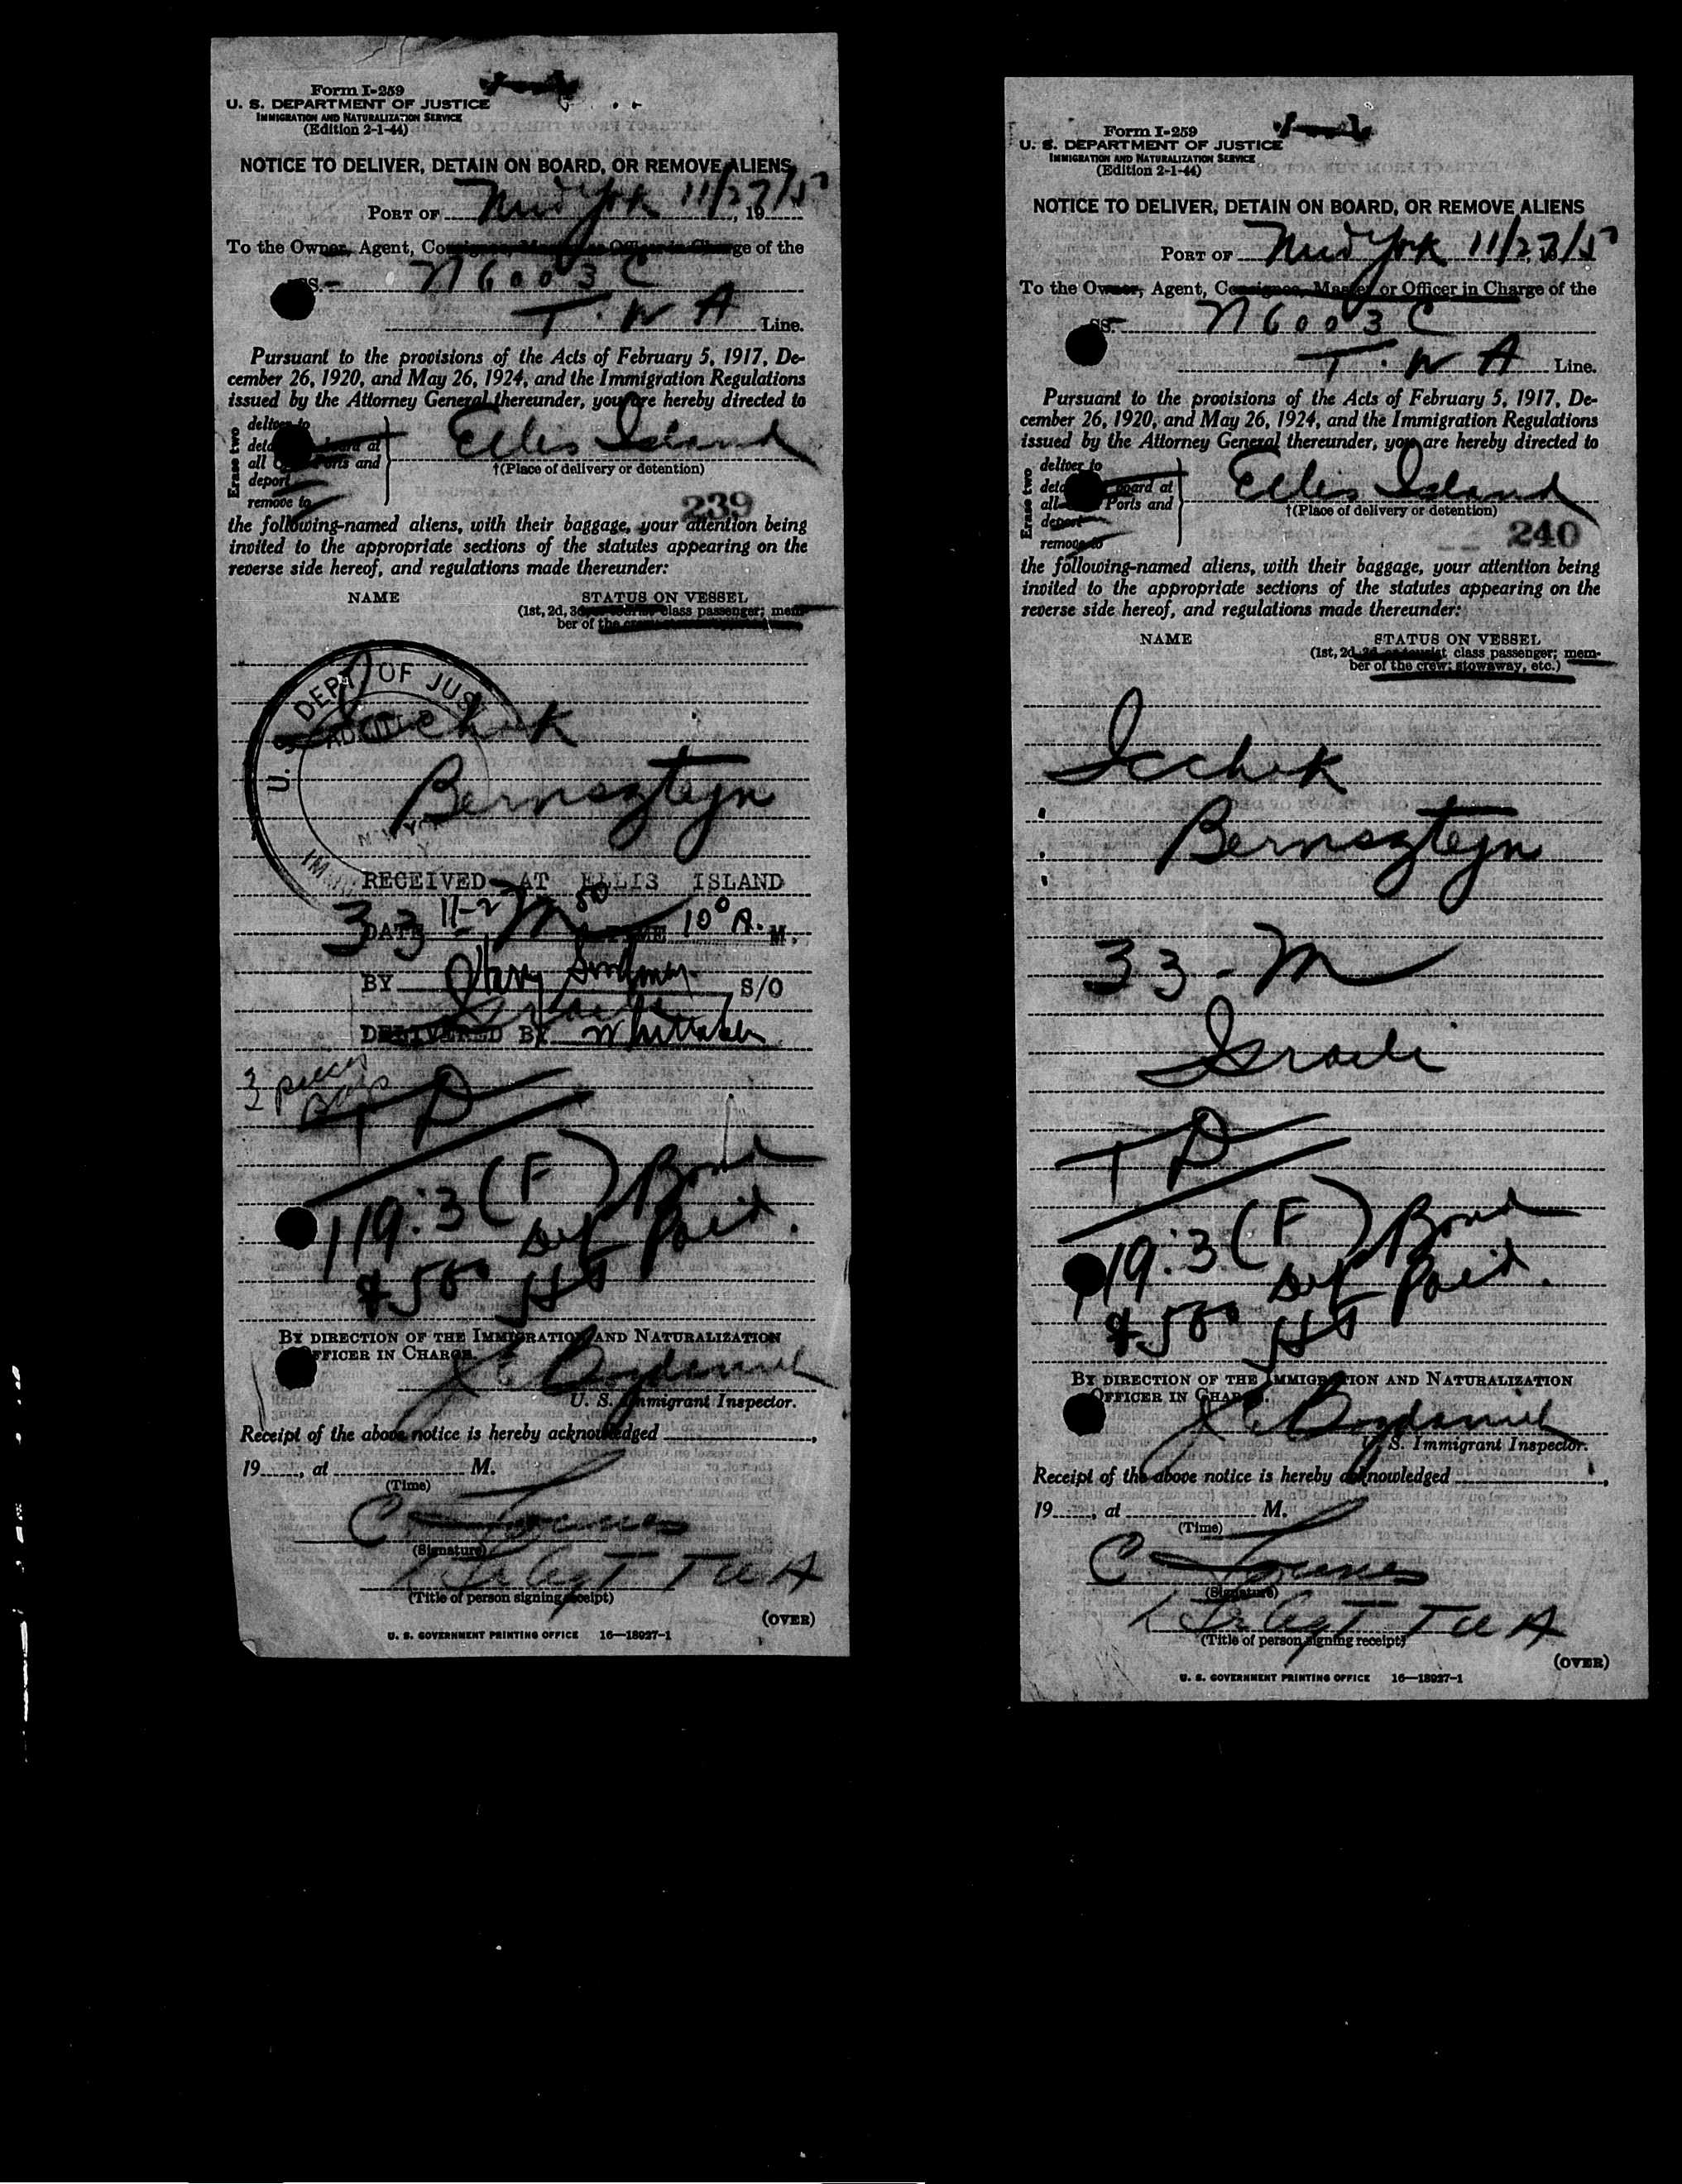 Form I-259
U. S. DEPARTMENT OF JUSTICE
IMMIGRATION AND NATURALIZATION SERVICE
(Edition 2-1-44)
NOTICE TO DELIVER, DETAIN ON BOARD, OR REMOVE ALIENS
PORT OF New York 11/27/50, 19
To the Owner, Agent, Consignee, Master or Officer in Charge of the
SS. N6003C
T.W A Line.
Pursuant to the provisions of the Acts of February 5, 1917, De-
cember 26, 1920, and May 26, 1924, and the Immigration Regulations
issued by the Attorney General thereunder, you are hereby directed to
Erase two
deliver to
board at
all Ports and
deport
remove to
Ellis Island
†(Place of delivery or detention)
239
the following-named aliens, with their baggage, your attention being
invited to the appropriate sections of the statutes appearing on the
reverse side hereof, and regulations made thereunder:
NAME STATUS ON VESSEL
(1st, 2d, 3d class passenger; mem-
ber of the
U. S. DEPT. OF JUS
ADMITTED
Icchok
Bernsztejn
N. W YO
IM
RECEIVED AT ELLIS ISLAND
33 M
DATE 11-2 50 TIME 10⁰ A. M.
BY Harry S/O
Israeli
DELIVERED BY Whittaker
3 pieces
Bags
T D
119.3 (F) Bond
Def Paid.
$500
BY DIRECTION OF THE IMMIGRATION AND NATURALIZATION
OFFICER IN CHARGE.
U. S. Immigrant Inspector.
Receipt of the above notice is hereby acknowledged ,
19 , at M.
(Time)
C
(Signature)
Agt TWA
(Title of person signing receipt)
(OVER)
U. S. GOVERNMENT PRINTING OFFICE 16—18927-1
Form I-259
U. S. DEPARTMENT OF JUSTICE
IMMIGRATION AND NATURALIZATION SERVICE
(Edition 2-1-44)
NOTICE TO DELIVER, DETAIN ON BOARD, OR REMOVE ALIENS
PORT OF New York 11/27/50
To the Owner, Agent, Consignee, Master or Officer in Charge of the
SS. N6003C
T.W A Line.
Pursuant to the provisions of the Acts of February 5, 1917, De-
cember 26, 1920, and May 26, 1924, and the Immigration Regulations
issued by the Attorney General thereunder, you are hereby directed to
Erase two
deliver to
board at
all Ports and
deport
remove to
Ellis Island
†(Place of delivery or detention)
240
the following-named aliens, with their baggage, your attention being
invited to the appropriate sections of the statutes appearing on the
reverse side hereof, and regulations made thereunder:
NAME STATUS ON VESSEL
(1st, 2d, 3d or tourist class passenger; mem-
ber of the crew; stowaway, etc.)
Icchok
Bernsztejn
33 - M
Israeli
T D
119.3 (F) Bond
Def Paid.
$500
BY DIRECTION OF THE IMMIGRATION AND NATURALIZATION
OFFICER IN CHARGE.
U. S. Immigrant Inspector.
Receipt of the above notice is hereby acknowledged ,
19 , at M.
(Time)
C
(Signature)
Agt TWA
(Title of person signing receipt)
(OVER)
U. S. GOVERNMENT PRINTING OFFICE 16—18927-1